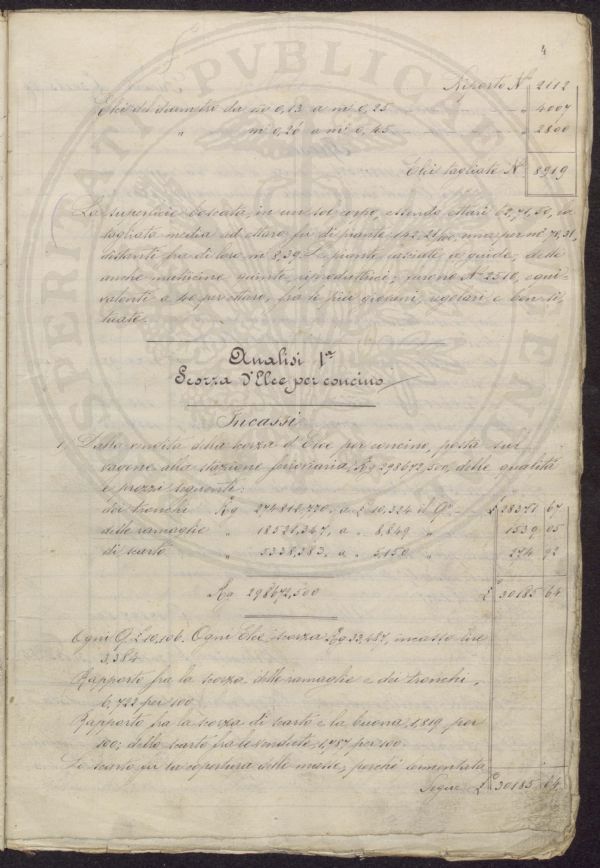 4
Riporto N° 2112
Elci del diametro da m 0,13 a m 0,25 " 4007
" m 0,26 a m 0,45 " 2800
Elci tagliate N° 8919
La superficie boscata, in un sol corpo, essendo ettari 62,71,50, la
tagliata media ad ettaro fu di piante 142, una per m² 70,31,
distanti fra di loro m 8,39. Le piante lasciate o guide, dette
anche matricine quinte, riproduttrici, furono N° 2510, equi-
valenti a 40 per ettaro, fra le più giovani, regolari e ben si-
tuate.
Analisi 1ª
Scorza d'Elce per concino
Incassi
1. Dalla vendita della scorza d'Elce per concino, posta sul
vagone alla stazione ferroviaria, Kg 298672,500, delle qualità
e prezzi seguenti:
dei tronchi Kg 274812,770, a £ 10,324 il Qe £ 28371 67
delle ramaglie " 18521,347, a " 8,849 " " 1539 05
di scarto " 5338,383, a " 5,150 " " 274 92
Kg 298672,500 £ 30185 64
Ogni Q. £ 10,106. Ogni Elce, scorza Kg 33,487, incasso lire
3,384
Rapporto fra la scorza delle ramaglie e dei tronchi,
6,722 per 100
Rapporto fra la scorza di scarto e la buona, 1,819 per
100; dello scarto fra le vendute, 1,787 per 100
Lo scarto fu la copertura delle masse, perché
Segue £ 30185 64
SPERITATI PVBLICAE